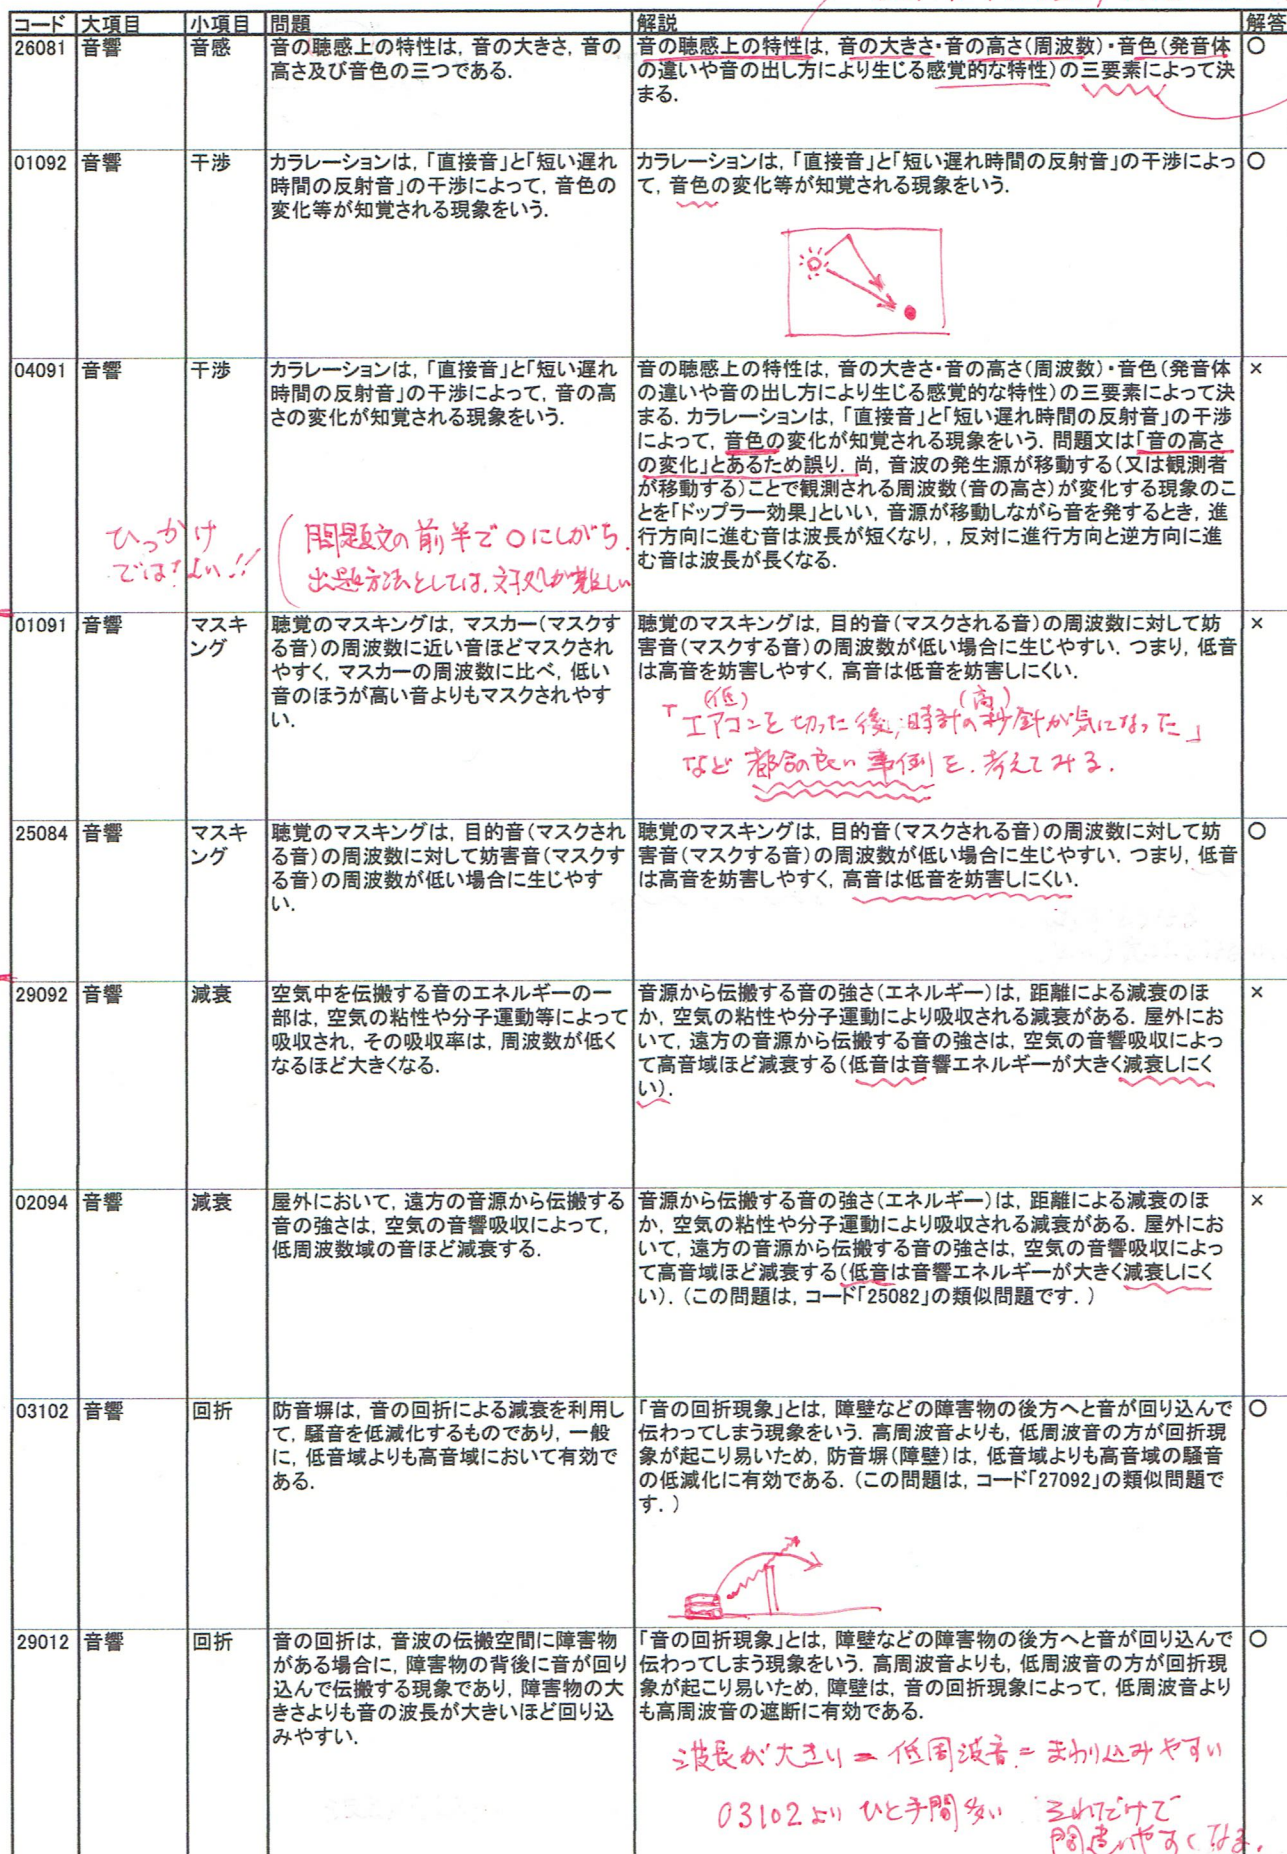 コード 大項目 小項目 問題 解説 解答
26081 音響 音感
音の聴感上の特性は, 音の大きさ, 音の
高さ及び音色の三つである.
音の聴感上の特性は, 音の大きさ・音の高さ(周波数)・音色(発音体
の違いや音の出し方により生じる感覚的な特性)の三要素によって決
まる.
○
01092 音響 干渉
カラレーションは, 「直接音」と「短い遅れ
時間の反射音」の干渉によって, 音色の
変化等が知覚される現象をいう.
カラレーションは, 「直接音」と「短い遅れ時間の反射音」の干渉によっ
て, 音色の変化等が知覚される現象をいう.
○
04091 音響 干渉
カラレーションは, 「直接音」と「短い遅れ
時間の反射音」の干渉によって, 音の高
さの変化が知覚される現象をいう.
ひっかけ
ではない!!
問題文の前半で○にしがち.
出題方法としては, 対処が難しい
音の聴感上の特性は, 音の大きさ・音の高さ(周波数)・音色(発音体
の違いや音の出し方により生じる感覚的な特性)の三要素によって決
まる. カラレーションは, 「直接音」と「短い遅れ時間の反射音」の干渉
によって, 音色の変化が知覚される現象をいう. 問題文は「音の高さ
の変化」とあるため誤り. 尚, 音波の発生源が移動する(又は観測者
が移動する)ことで観測される周波数(音の高さ)が変化する現象のこ
とを「ドップラー効果」といい, 音源が移動しながら音を発するとき, 進
行方向に進む音は波長が短くなり, , 反対に進行方向と逆方向に進
む音は波長が長くなる.
×
01091 音響 マスキ
ング
聴覚のマスキングは, マスカー(マスクす
る音)の周波数に近い音ほどマスクされ
やすく, マスカーの周波数に比べ, 低い
音のほうが高い音よりもマスクされやす
い.
聴覚のマスキングは, 目的音(マスクされる音)の周波数に対して妨
害音(マスクする音)の周波数が低い場合に生じやすい. つまり, 低音
は高音を妨害しやすく, 高音は低音を妨害しにくい.
(低) (高)
「エアコンを切った後, 時計の秒針が気になった」
など 都合の良い事例を. 考えてみる.
×
25084 音響 マスキ
ング
聴覚のマスキングは, 目的音(マスクされ
る音)の周波数に対して妨害音(マスクす
る音)の周波数が低い場合に生じやす
い.
聴覚のマスキングは, 目的音(マスクされる音)の周波数に対して妨
害音(マスクする音)の周波数が低い場合に生じやすい. つまり, 低音
は高音を妨害しやすく, 高音は低音を妨害しにくい.
○
29092 音響 減衰
空気中を伝搬する音のエネルギーの一
部は, 空気の粘性や分子運動等によって
吸収され, その吸収率は, 周波数が低く
なるほど大きくなる.
音源から伝搬する音の強さ(エネルギー)は, 距離による減衰のほ
か, 空気の粘性や分子運動により吸収される減衰がある. 屋外にお
いて, 遠方の音源から伝搬する音の強さは, 空気の音響吸収によっ
て高音域ほど減衰する(低音は音響エネルギーが大きく減衰しにく
い).
×
02094 音響 減衰
屋外において, 遠方の音源から伝搬する
音の強さは, 空気の音響吸収によって,
低周波数域の音ほど減衰する.
音源から伝搬する音の強さ(エネルギー)は, 距離による減衰のほ
か, 空気の粘性や分子運動により吸収される減衰がある. 屋外にお
いて, 遠方の音源から伝搬する音の強さは, 空気の音響吸収によっ
て高音域ほど減衰する(低音は音響エネルギーが大きく減衰しにく
い). (この問題は, コード「25082」の類似問題です. )
×
03102 音響 回折
防音塀は, 音の回折による減衰を利用し
て, 騒音を低減化するものであり, 一般
に, 低音域よりも高音域において有効で
ある.
「音の回折現象」とは, 障壁などの障害物の後方へと音が回り込んで
伝わってしまう現象をいう. 高周波音よりも, 低周波音の方が回折現
象が起こり易いため, 防音塀(障壁)は, 低音域よりも高音域の騒音
の低減化に有効である. (この問題は, コード「27092」の類似問題で
す. )
○
29012 音響 回折
音の回折は, 音波の伝搬空間に障害物
がある場合に, 障害物の背後に音が回り
込んで伝搬する現象であり, 障害物の大
きさよりも音の波長が大きいほど回り込
みやすい.
「音の回折現象」とは, 障壁などの障害物の後方へと音が回り込んで
伝わってしまう現象をいう. 高周波音よりも, 低周波音の方が回折現
象が起こり易いため, 障壁は, 音の回折現象によって, 低周波音より
も高周波音の遮断に有効である.
波長が大きい = 低周波音 = まわり込みやすい
03102より ひと手間多い それだけで
間違いやすくなる.
○